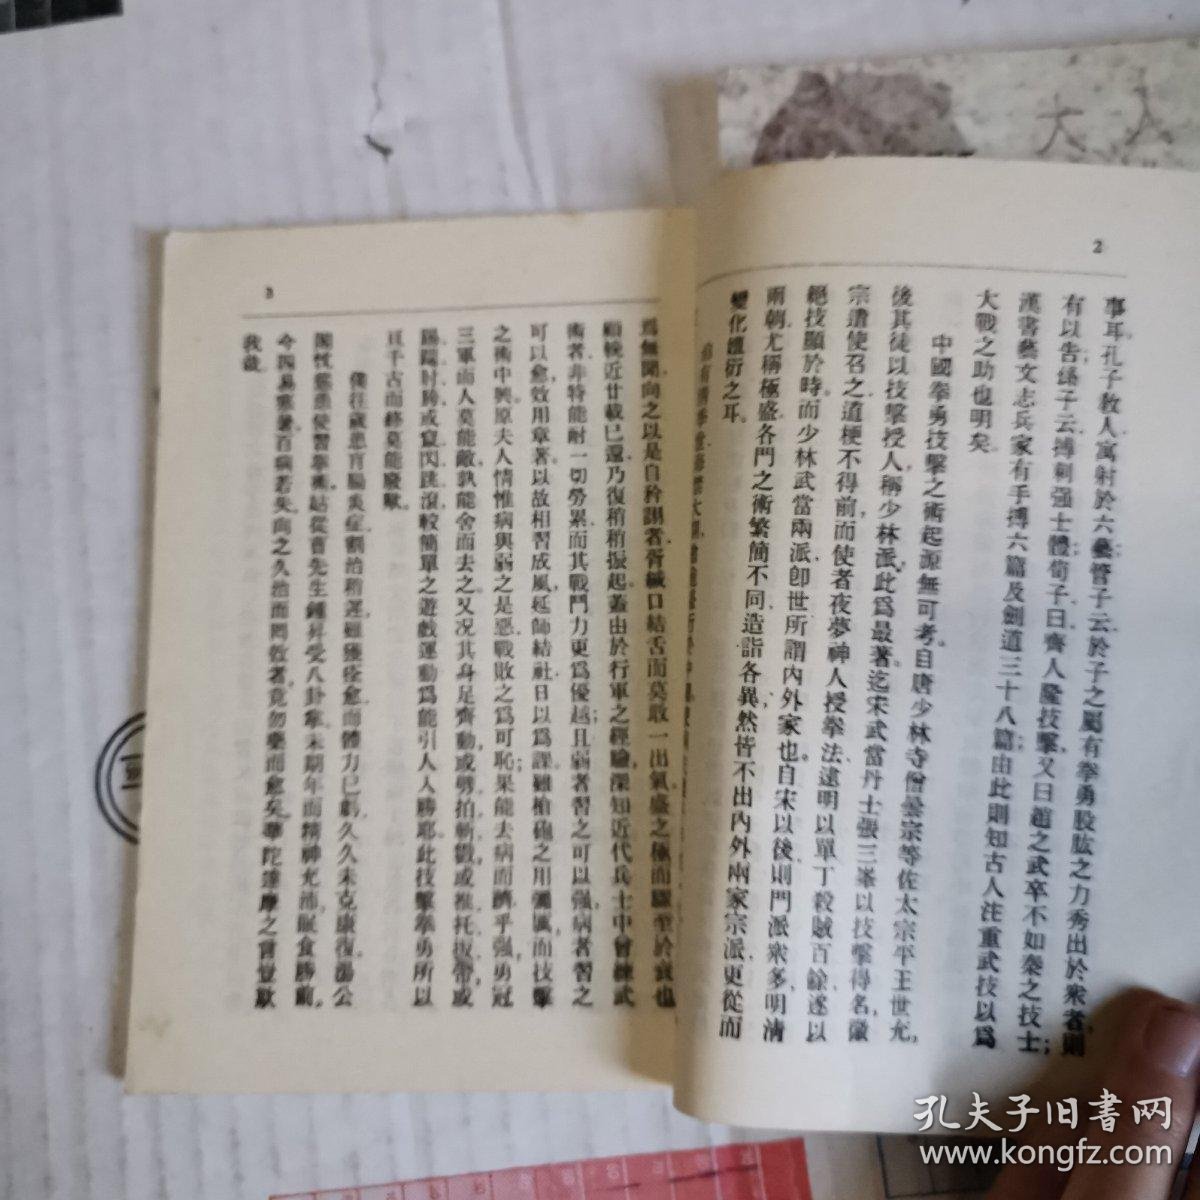 大
入
2
事耳孔子教人寓射於六藝管子云於子之屬有拳勇股肱之力秀出於衆者則
有以告孫子云搏刺强士體荀子曰齊人隆技擊又曰趙之武卒不如秦之技士
漢書藝文志兵家有手搏六篇及劍道三十八篇由此則知古人注重武技以爲
大戰之助也明矣
中國拳勇技擊之術起源無可考自唐少林寺僧曇宗等佐太宗平王世充
後其徒以技擊授人稱少林派此爲最著迄宋武當丹士張三峯以技擊得名徽
宗遣使召之道梗不得前而使者夜夢神人授拳法遠明以單丁殺賊百餘遂以
絕技顯於時而少林武當兩派卽世所謂内外家也自宋以後則門派衆多明清
兩朝尤稱極盛各門之術繁簡不同造詣各異然皆不出内外兩家宗派更從而
變化遞衍之耳
3
爲無聞向之以是自矜詡者胥緘口結舌而莫敢一出氣盛之極而驟至於衰也
顧輓近廿載已還乃復稍稍振起蓋由於行軍之經驗深知近代兵士中曾練武
術者非特能耐一切勞累而其戰鬥力更爲優越且弱者習之可以强病者習之
可以愈效用章著以故相習成風延師結社日以爲課雖槍砲之用彌厲而技擊
之術中興原夫人情惟病與弱之是惡戰敗之爲可恥果能去病而躋乎强勇冠
三軍而人莫能敵孰能舍而去之又况其身足齊動或劈拍斬戳或推托扳帶或
踢踹肘膀或竄閃跳滾較簡單之遊戲運動爲能引人入勝耶此技擊拳勇所以
亘千古而終莫能廢歟
僕往歲患盲腸炎症割治稍遲雖獲痊愈而體力已虧久久未克康復湯公
閣忱慫恿使習拳術姑從曹先生鍾昇受八卦拳未期年而精神充沛眠食勝前
今四易寒暑百病若失向之久治而罔效者竟勿藥而愈矣華陀達摩之言豈欺
我哉
孔夫子旧書网
www.kongfz.com